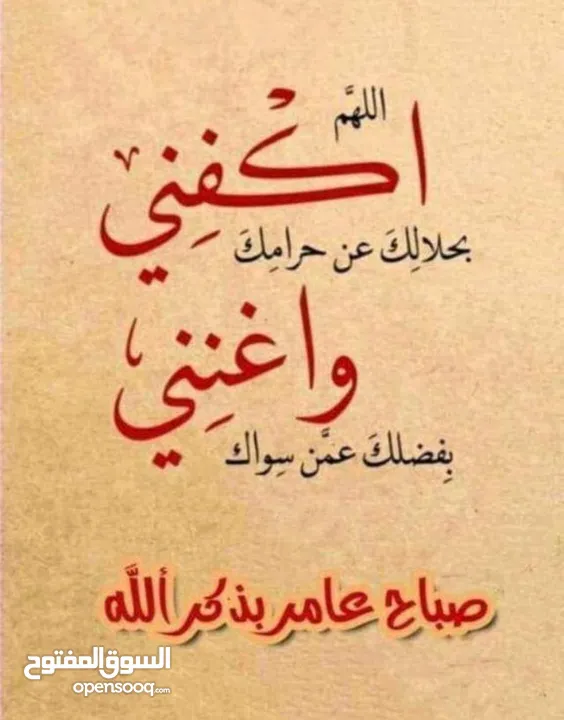 اللهمَّ
اكْفِنِي
بحلالِكَ عن حرامِكَ
واغنِنِي
بِفضلكَ عمَّن سِواك
صباح عامر بذكر أللَّه
السوق المفتوح
opensooq.com